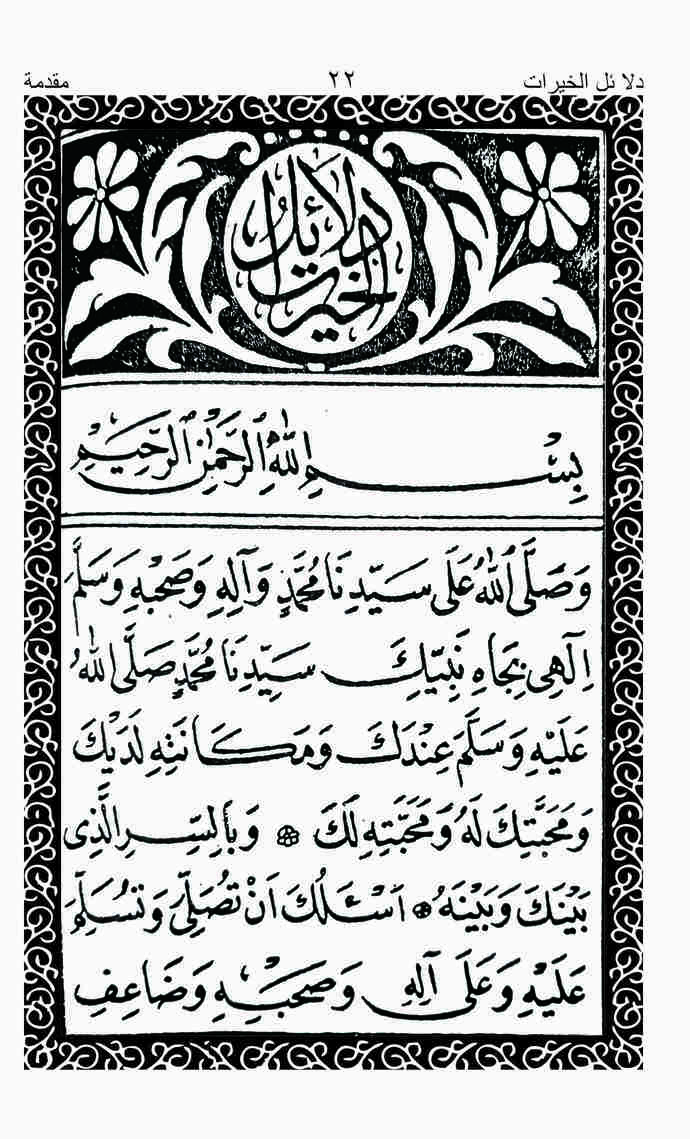 دلائل الخيرات ٢٢ مقدمة
دَلَائِلُ
الْخَيْرَاتِ
بِسْمِ ٱللّٰهِ ٱلرَّحْمٰنِ ٱلرَّحِيْمِ
وَصَلَّى ٱللّٰهُ عَلَى سَيِّدِنَا مُحَمَّدٍ وَآلِهِ وَصَحْبِهِ وَسَلَّمَ
اِلٰهِى بِجَاهِ نَبِيِّكَ سَيِّدِنَا مُحَمَّدٍ صَلَّى اللّٰهُ
عَلَيْهِ وَسَلَّمَ عِنْدَكَ وَمَكَانَتِهِ لَدَيْكَ
وَمَحَبَّتِكَ لَهُ وَمَحَبَّتِهِ لَكَ ۞ وَبِالسِّرِ الَّذِى
بَيْنَكَ وَبَيْنَهُ ۞ اَسْئَلُكَ اَنْ تُصَلِّىَ وَتُسَلِّمَ
عَلَيْهِ وَعَلَى آلِهِ وَصَحْبِهِ وَضَاعِفِ